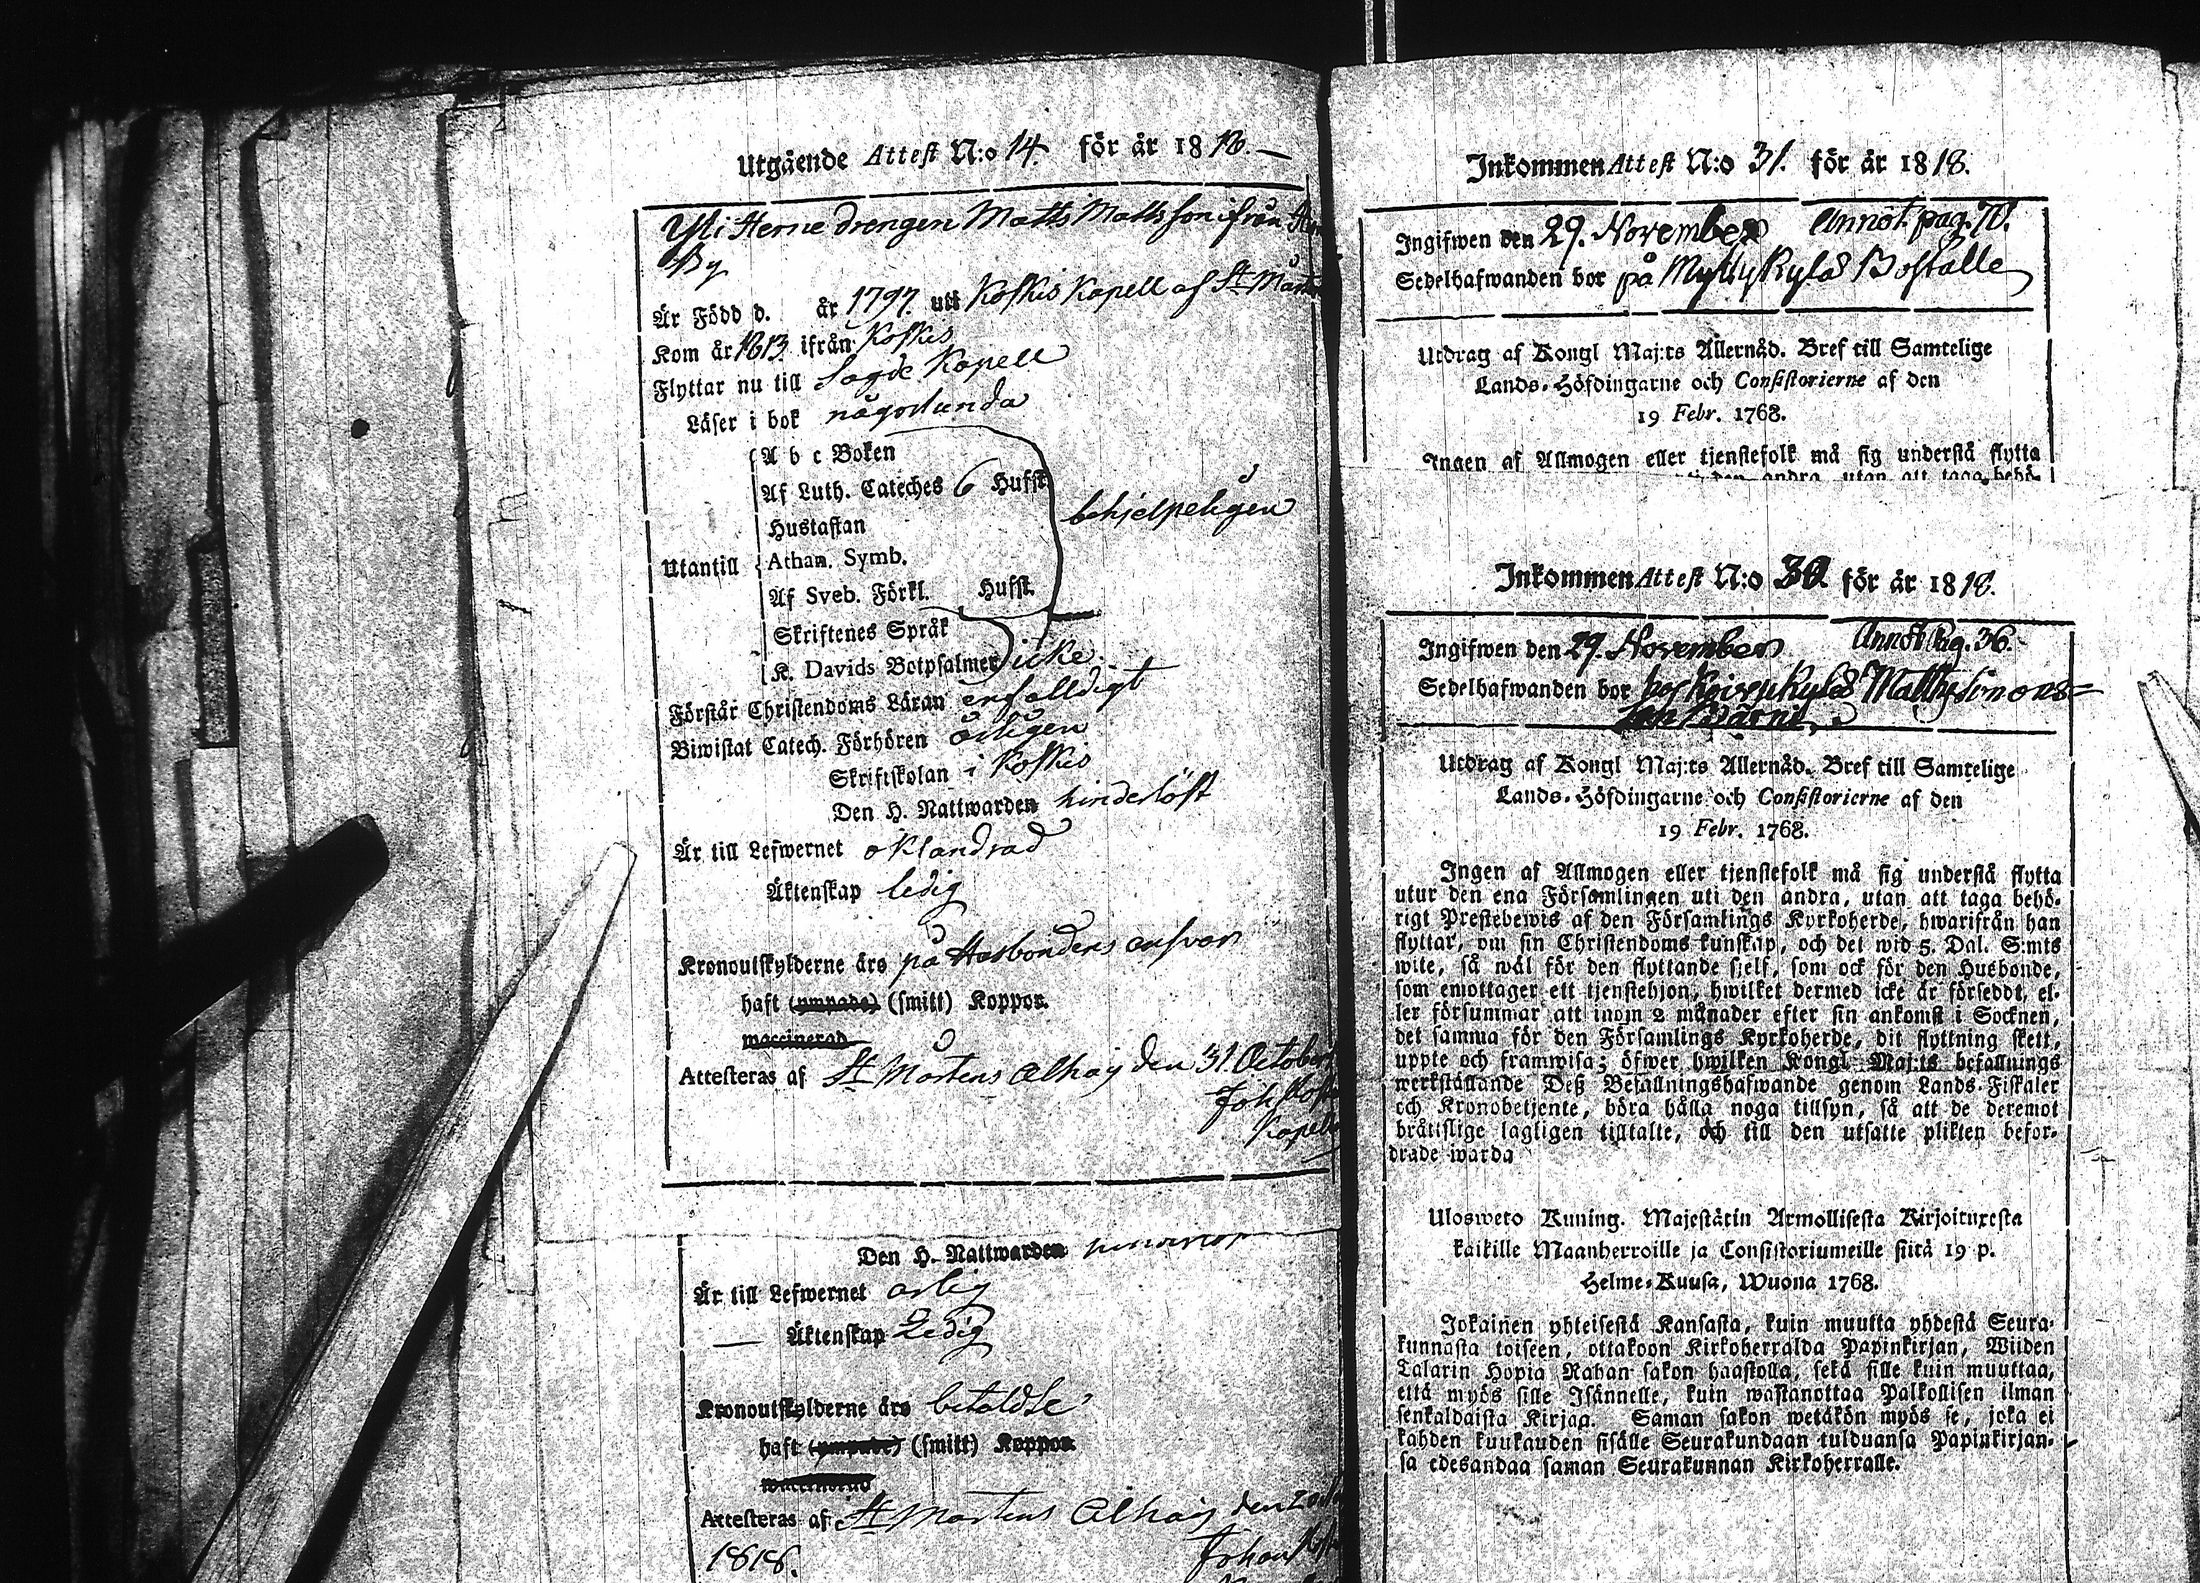 Utgående Attest N:o 14. för år 1818.
Yli Herne drengen Matts Mattsson ifrån
By
Är Född d. år 1797. uti Koskis Kapell af St Mårt
Kom år 1813 ifrån Koskis
Flyttar nu till Sagde Kapell
Läser i bok någorlunda
A b c Boken
Af Luth. Cateches 6 Hufst.
behjelpeligen
Hustaflan
Utantill Athan. Symb.
Af Sveb. Förkl. Hufst.
Skriftenes Språk
K. Davids Botpsalmer icke
Förstår Christendoms Läran enfalldigt
Biwistat Catech. Förhören årligen
Skriftskolan i Koskis
Den H. Nattwarden hinderlöst
Är till Lefwernet oklandrad
Äktenskap ledig
Kronoutskylderne äro på Husbondens answar
haft (ympade) (smitt) Koppor.
waccinerad
Attesteras af St Mårtens Alhay den 31 October
Joh
Kapell
Den H. Nattwarden
Är till Lefwernet ärlig
Äktenskap Ledig
Kronoutskylderne äro betaldte
haft (ympade) (smitt) Koppor
waccinerad
Attesteras af St Mårtens Alhay den 20
1818. Johan
Inkommen Attest N:o 31. för år 1818.
Ingifwen den 29. November Annot. pag. 70.
Sedelhafwanden bor på Myllykylä Boställe
Utdrag af Kongl Maj:ts Allernåd. Bref till Samtelige
Lands-Höfdingarne och Consistorierne af den
19 Febr. 1768.
Ingen af Allmogen eller tjenstefolk må sig understå flytta
den andra, utan att taga behö-
Inkommen Attest N:o 30. för år 1818.
Ingifwen den 29. November Annot. Pag. 36.
Sedelhafwanden bor hos Matts Simons-
son
Utdrag af Kongl Maj:ts Allernåd. Bref till Samtelige
Lands-Höfdingarne och Consistorierne af den
19 Febr. 1768.
Ingen af Allmogen eller tjenstefolk må sig understå flytta
utur den ena Församlingen uti den andra, utan att taga behö-
rigt Prestebewis af den Församlings Kyrkoherde, hwarifrån han
flyttar, om sin Christendoms kunskap, och det wid 5. Dal. S:mts
wite, så wäl för den flyttande sjelf, som ock för den Husbonde,
som emottager ett tjenstehjon, hwilket dermed icke är försedt, el-
ler försummar att inom 2 månader efter sin ankomst i Socknen,
det samma för den Församlings Kyrkoherde, dit flyttning skett,
uppte och framwisa; öfwer hwilken Kongl Maj:ts befallnings
werkställande Deß Befallningshafwande genom Lands-Fiskaler
och Kronobetjente, böra hålla noga tillsyn, så att de deremot
bråtslige lagligen tilltalte, och till den utsatte plikten befor-
drade warda
Uloswero Kuning. Majestätin Armollisesta Kirjoituxesta
kaikille Maanherroille ja Consistoriumeille siitä 19 p.
Helme-Kuusa, Wuona 1768.
Jokainen yhteisestä Kansasta, kuin muutta yhdestä Seura-
kunnasta toiseen, ottakoon Kirkoherralda Papinkirjan, Wiiden
Talarin Hopia Rahan sakon haastolla, sekä sille kuin muuttaa,
että myös sille Isännelle, kuin wastanottaa Palkollisen ilman
senkaldaista Kirjaa. Saman sakon wetäkön myös se, joka ei
kahden kuukauden sisälle Seurakundaan tulduansa Papinkirjan-
sa edesandaa saman Seurakunnan Kirkoherralle.